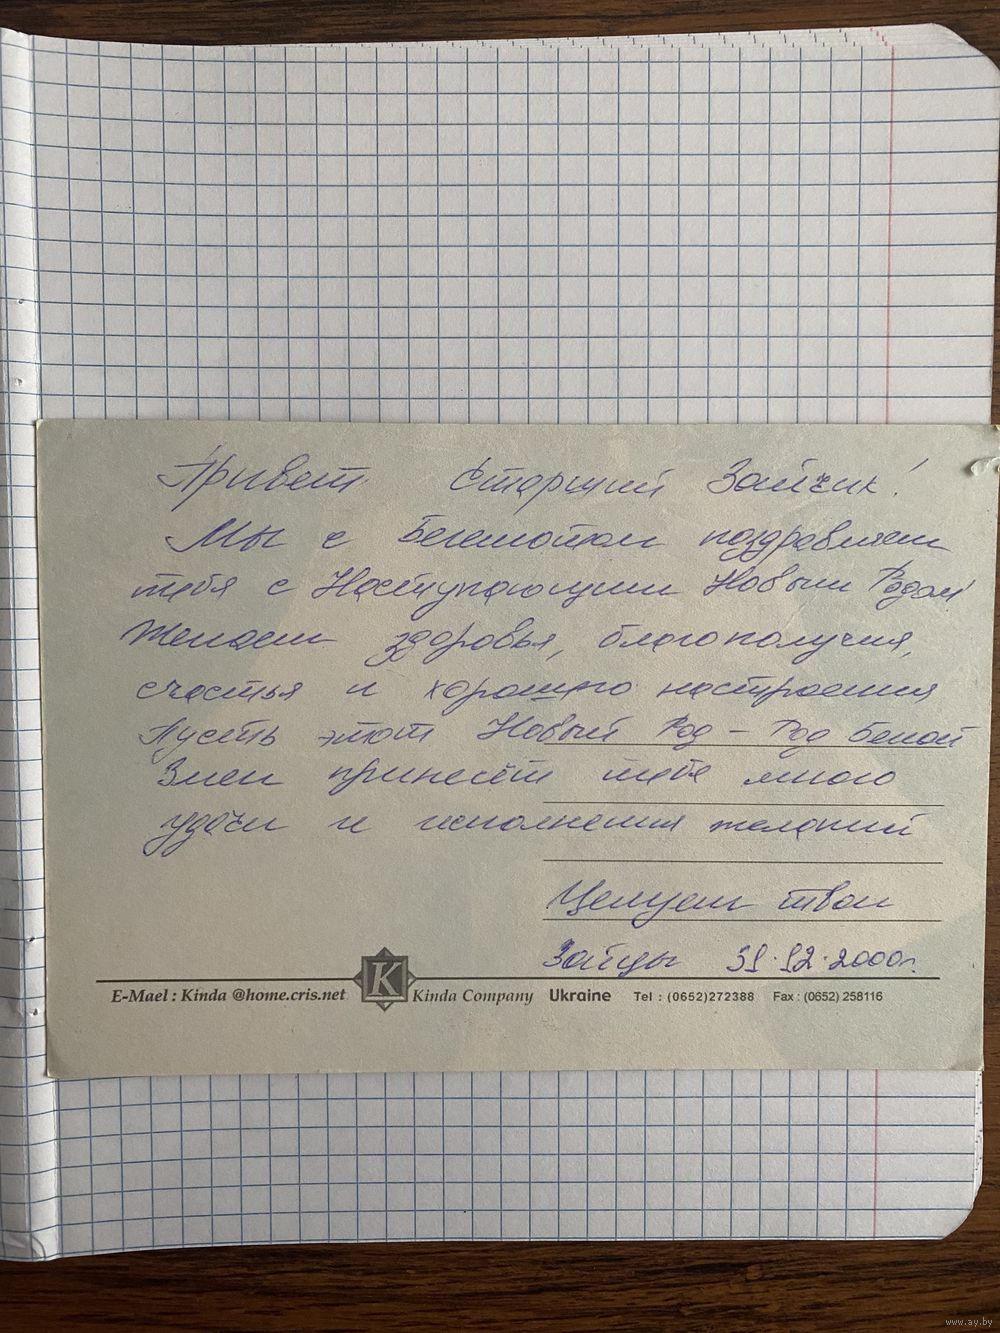 Привет Старший Зайчик!
Мы с Бегемотом поздравляем
тебя с Наступающим Новым Годом!
Желаем здоровья, благополучия,
счастья и хорошего настроения
Пусть этот Новый Год - Год Белой
Змеи принесёт тебе много
удачи и исполнения желаний
Целуем твои
Зайцы 31.12.2000г.
E-Mael : Kinda @home.cris.net K Kinda Company Ukraine Tel : (0652)272388 Fax : (0652) 258116
www.ay.by